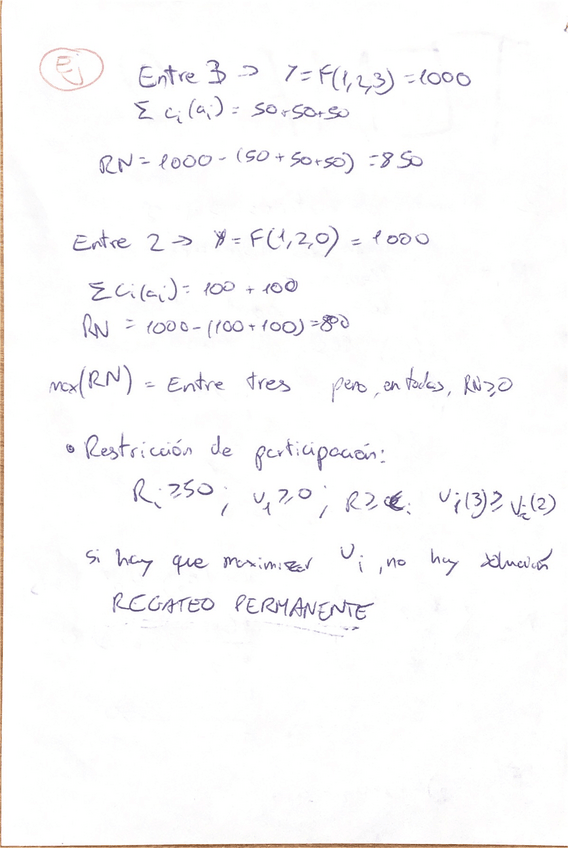 Ej
Entre 3 → Y = F(1,2,3) = 1000
Σ ci(ai) = 50+50+50
RN = 1000 - (50+50+50) = 850
Entre 2 → Y = F(1,2,0) = 1000
Σ ci(ai) = 100 + 100
RN = 1000 - (100+100) = 800
max(RN) = Entre tres pero, en todas, RN ≥ 0
• Restricción de participación:
Ri ≥ 50; U1 ≥ 0; R ≥ c. Ui(3) ≥ Ui(2)
si hay que maximizar Ui, no hay solución
REGATEO PERMANENTE